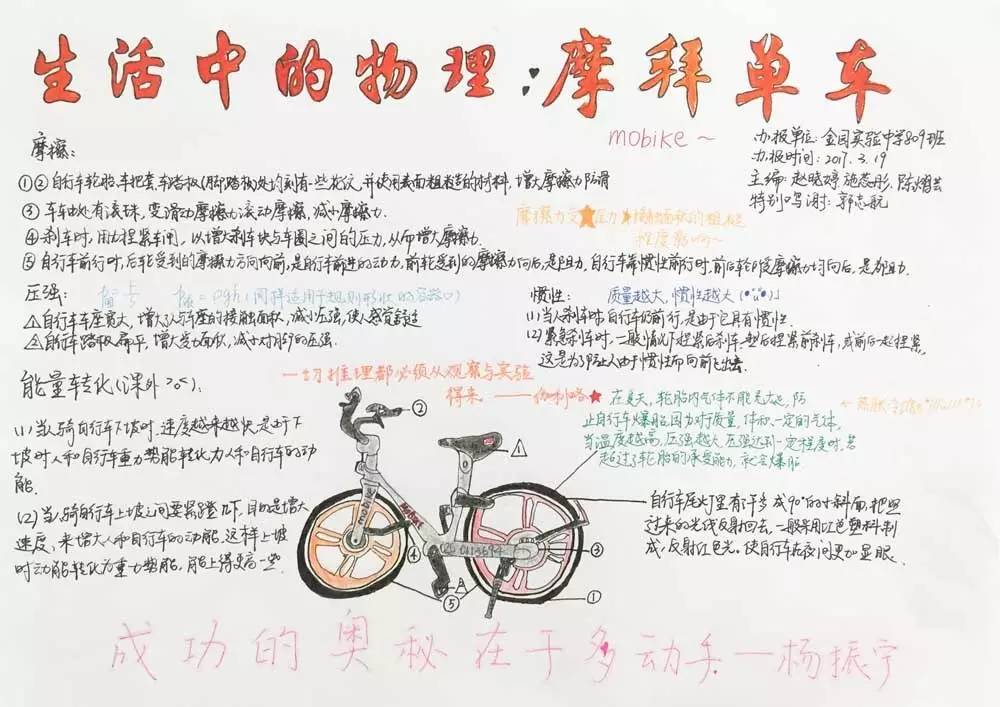 生活中的物理:摩拜单车
mobike~
办报单位:金园实验中学809班
办报时间:2017.3.19
主编:赵晓婷 施蕊彤
特别鸣谢:郭志航
摩擦:
①②自行车轮胎、车把套、车踏板(脚踏板)处均刻有一些花纹,并使用表面粗糙的材料,增大摩擦力防滑
③车车由处有滚珠,变滑动摩擦为滚动摩擦,减小摩擦力.
④刹车时,用力捏紧车闸,以增刹车块与车圈之间的压力,从而增大摩擦力.
摩擦力受★压力★接触面积的粗糙
程度影响~
⑤自行车前行时,后轮受到的摩擦力方向向前,是自行车前进的动力,前轮受到的摩擦力向后,是阻力,自行车靠惯性前行时,前后轮所受摩擦力均向后,是为阻力.
压强:
=ρgh(同样适用于规则形状的容器)
△自行车车座宽大,增大了人与车座的接触面积,减小压强,使人感觉舒适
△自行车踏板扁平,增大受力面积,减小对脚的压强.
惯性:
质量越大,惯性越大
(1)当人刹车时,自行车仍前行,是由于它具有惯性.
(2)紧急刹车时,一般情况下捏紧后刹车,然后捏紧前刹车,或前后一起捏紧,
这是为防止人由于惯性而向前飞出去.
能量转化(课外)
(1)当人骑自行车下坡时,速度越来越快,是由于下
坡时人和自行车重力势能转化为人和自行车的动
能.
(2)当人骑自行车上坡之间要紧蹬几下,目的是增大
速度,来增大人和自行车的动能,这样上坡
时动能转化为重力势能,能上得更高一些.
一切推理都必须从观察与实验
得来. ——伽利略
★在夏天,轮胎内气体不能充太足,防
止自行车爆胎,因为对于质量、体积一定的气体,
当温度越高,压强越大,压强达到一定程度时,若
超过了轮胎的承受能力,就会爆胎
自行车尾灯里有许多成90°的小斜面,把照
过来的光线反射回去,一般采用红色塑料制
成,反射红色光.使自行车在夜间更加显眼.
②
△
mobike
mobike
④
③
△
⑤
①
成功的奥秘在于多动手—杨振宁